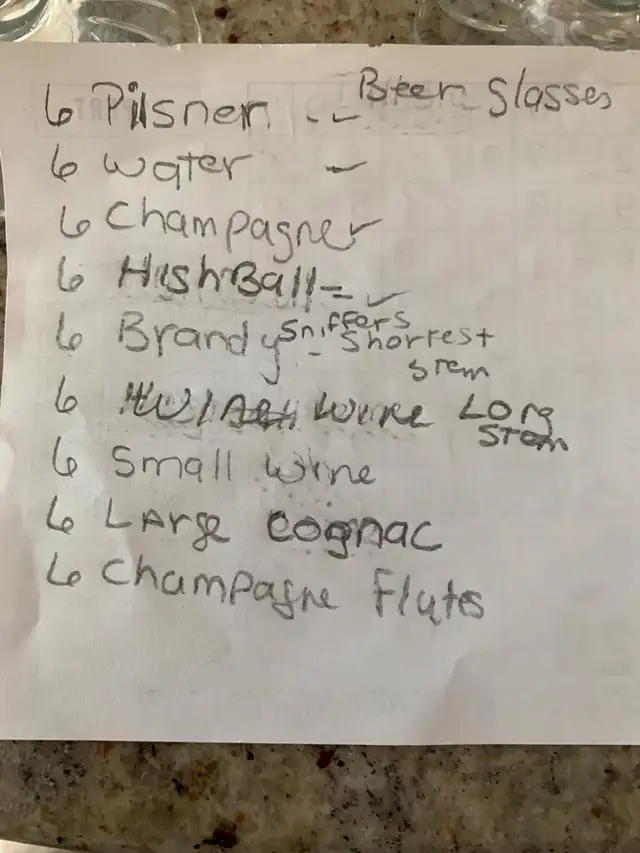 6 Pilsner -- Beer Glasses
6 water -
6 Champagner
6 HighBall -
6 Brandy Sniffers - Shortest
Stem
6 Wine Long
Stem
6 Small Wine
6 Large Cognac
6 Champagne Flutes